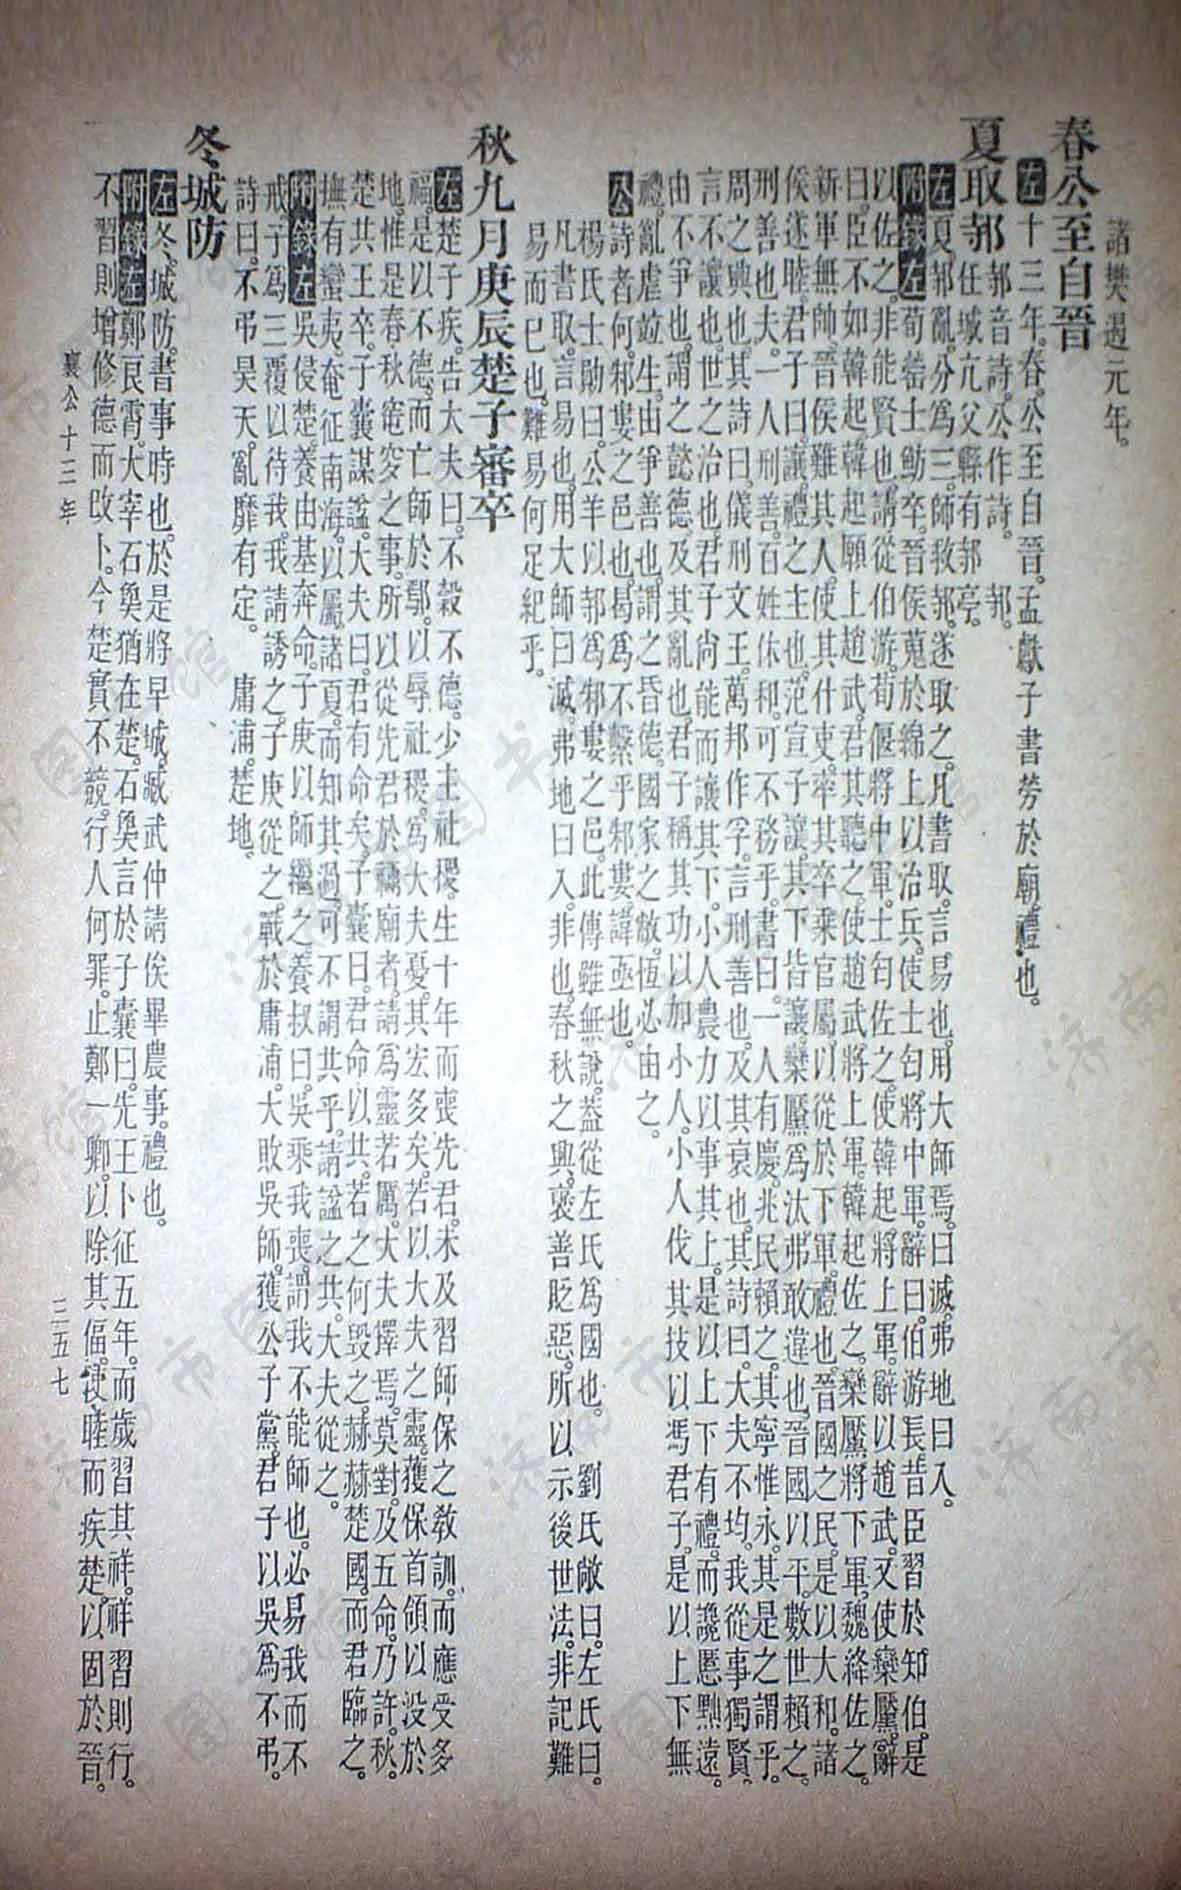 諸樊遏元年。
春公至自晉
左十三年。春。公至自晉。孟獻子書勞於廟。禮也。
夏取邿邿音詩。公作詩。　邿。
任城亢父縣有邿亭。
左夏。邿亂。分爲三。師救邿。遂取之。凡書取。言易也。用大師焉。曰滅。弗地曰入。
附錄左荀罃士魴卒。晉侯蒐於綿上以治兵。使士匄將中軍。辭曰。伯游長。昔臣習於知伯。是
以佐之。非能賢也。請從伯游。荀偃將中軍。士匄佐之。使韓起將上軍。辭以趙武。又使欒黶。辭
曰。臣不如韓起。韓起願上趙武。君其聽之。使趙武將上軍。韓起佐之。欒黶將下軍。魏絳佐之。
新軍無帥。晉侯難其人。使其什吏。率其卒乘官屬。以從於下軍。禮也。晉國之民。是以大和。諸
侯遂睦。君子曰。讓。禮之主也。范宣子讓。其下皆讓。欒黶爲汰。弗敢違也。晉國以平。數世賴之。
刑善也夫。一人刑善。百姓休和。可不務乎。書曰。一人有慶。兆民賴之。其寧惟永。其是之謂乎。
周之興也。其詩曰。儀刑文王。萬邦作孚。言刑善也。及其衰也。其詩曰。大夫不均。我從事獨賢。
言不讓也。世之治也。君子尚能而讓其下。小人農力以事其上。是以上下有禮。而讒慝黜遠。
由不爭也。謂之懿德。及其亂也。君子稱其功以加小人。小人伐其技以馮君子。是以上下無
禮。亂虐竝生。由爭善也。謂之昏德。國家之敝。恆必由之。
公詩者何。邾婁之邑也。曷爲不繫乎邾婁。諱亟也。
楊氏士勛曰。公羊以邿爲邾婁之邑。此傳雖無說。葢從左氏爲國也。　劉氏敞曰。左氏曰。
凡書取。言易也。用大師曰滅。弗地曰入。非也。春秋之興。襃善貶惡。所以示後世法。非記難
易而已也。難易何足紀乎。
秋九月庚辰楚子審卒
左楚子疾。告大夫曰。不穀不德。少主社稷。生十年而喪先君。未及習師保之敎訓。而應受多
福。是以不德。而亡師於鄢。以辱社稷。爲大夫憂。其宏多矣。若以大夫之靈。獲保首領以沒於
地。惟是春秋窀穸之事。所以從先君於禰廟者。請爲靈若厲。大夫擇焉。莫對。及五命。乃許。秋。
楚共王卒。子囊謀諡。大夫曰。君有命矣。子囊曰。君命以共。若之何毀之。赫赫楚國。而君臨之。
撫有蠻夷。奄征南海。以屬諸夏。而知其過。可不謂共乎。請諡之共。大夫從之。
附錄左吳侵楚。養由基奔命。子庚以師繼之。養叔曰。吳乘我喪。謂我不能師也。必易我而不
戒。子爲三覆以待我。我請誘之。子庚從之。戰於庸浦。大敗吳師。獲公子黨。君子以吳爲不弔。
詩曰。不弔昊天。亂靡有定。　庸浦。楚地。
冬城防
左冬。城防。書事時也。於是將早城。臧武仲請俟畢農事。禮也。
附錄左鄭良霄。大宰石㚟猶在楚。石㚟言於子囊曰。先王卜征五年。而歲習其祥。祥習則行。
不習則增修德而改卜。今楚實不競。行人何罪。止鄭一卿。以除其偪。使睦而疾楚。以固於晉。
襄公十三年
三五七